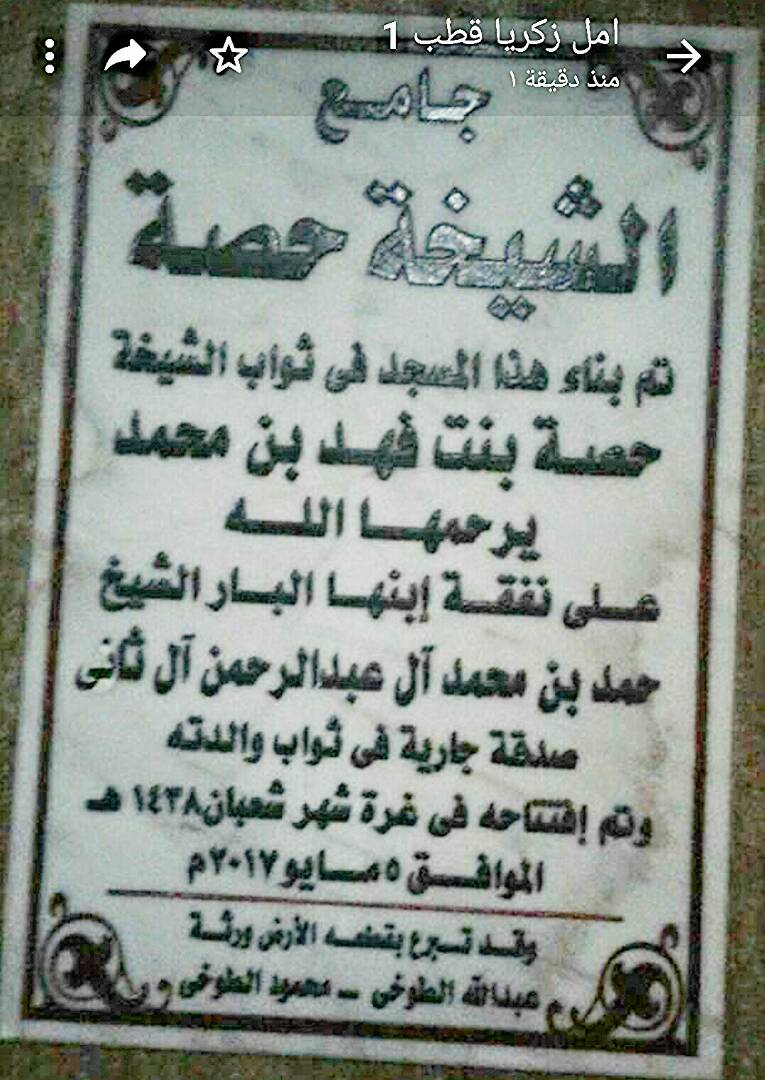 امل زكريا قطب 1
منذ دقيقة ١
جامع
الشيخة حصة
تم بناء هذا المسجد فى ثواب الشيخة
حصة بنت فهد بن محمد
يرحمها الله
على نفقة إبنها البار الشيخ
حمد بن محمد آل عبدالرحمن آل ثانى
صدقة جارية فى ثواب والدته
وتم إفتتاحه فى غرة شهر شعبان١٤٣٨ هـ
الموافق ٥ مايو ٢٠١٧م
وقد تبرع بقطعه الأرض ورثة
عبدالله الطوخى - محمود الطوخى